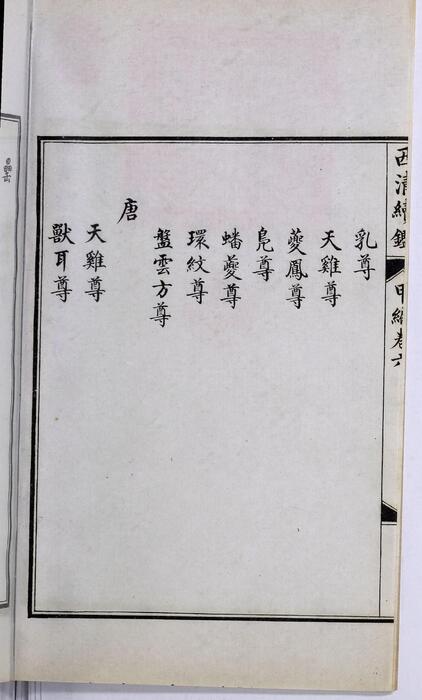 西清續鑑 甲編卷六
乳尊
天雞尊
夔鳳尊
鳧尊
蟠夔尊
環紋尊
盤雲方尊
唐
天雞尊
獸耳尊